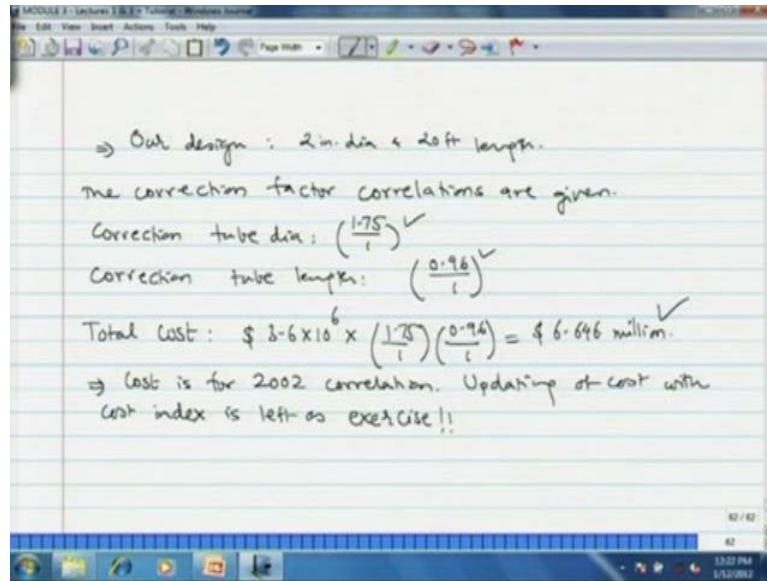 MODULE 3 - Lectures 1 & 3 + Tutorial - Windows Journal
Edit View Insert Actions Tools Help
Page Width
⇒ Our design : 2 in. dia & 20 ft length.
The correction factor correlations are given.
Correction tube dia : (1.75/1) ✓
Correction tube length : (0.96/1) ✓
Total Cost : $ 3.6 × 10^6 × (1.75/1) (0.96/1) = $ 6.646 million. ✓
⇒ Cost is for 2002 correlation. Updating of cost with
cost index is left as exercise!!
62 / 62
62
12:22 PM
1/12/2012